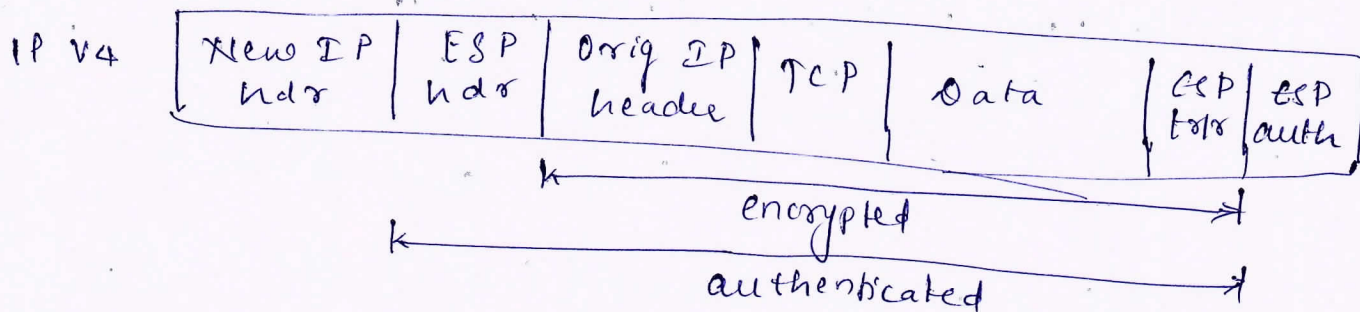 IP V4
New IP hdr
ESP hdr
Orig IP header
TCP
Data
ESP trlr
ESP auth
encrypted
authenticated